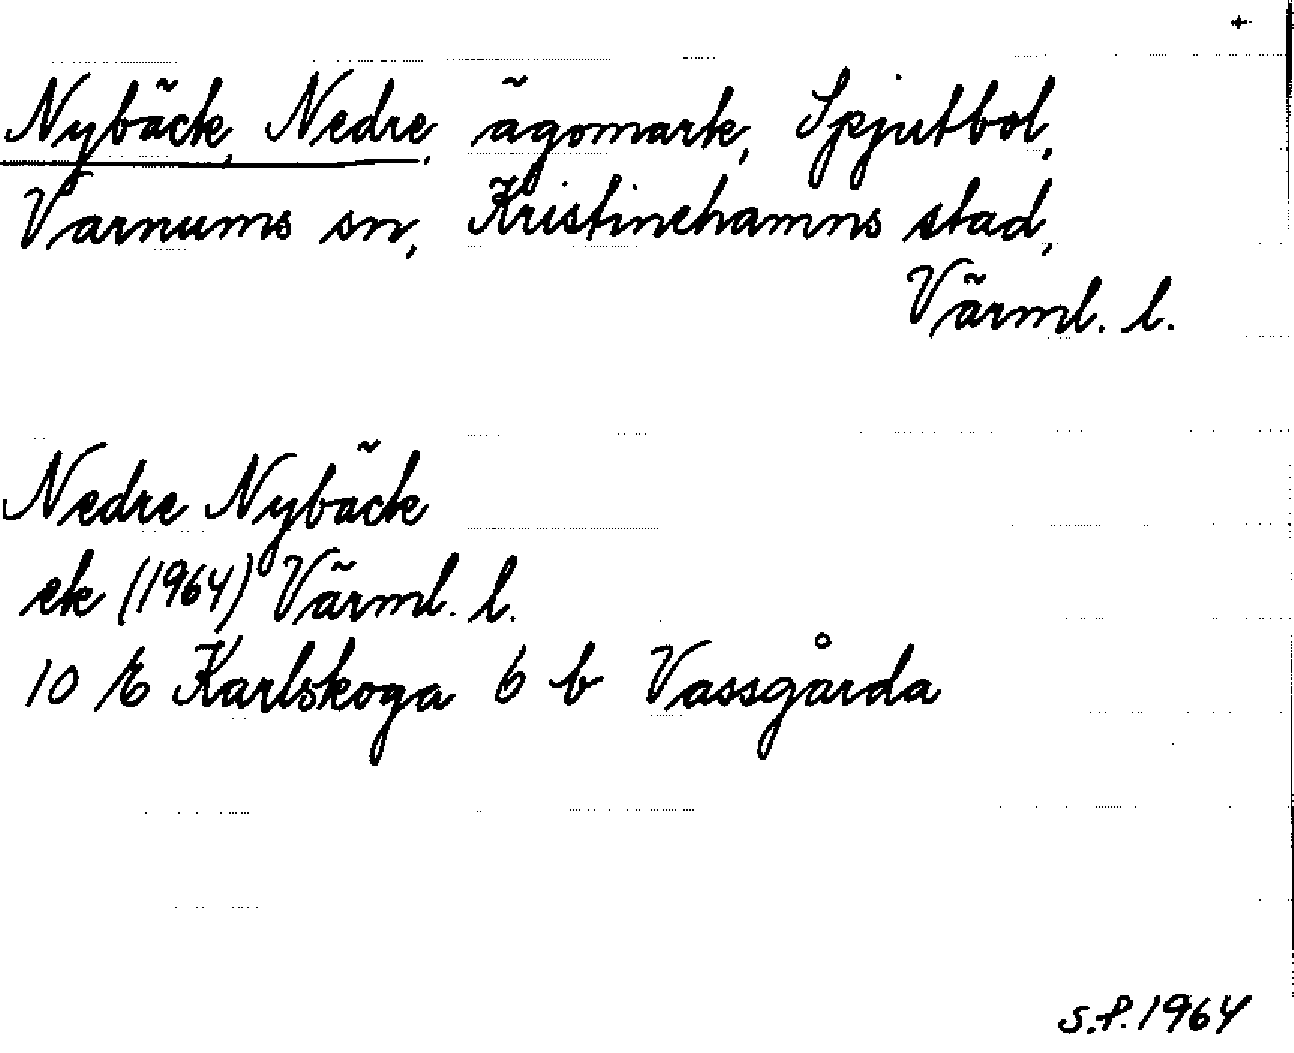 +
Nybäck, Nedre, ägomark, Spjutbol,
Varnums sn, Kristinehamns stad,
Värml. l.
Nedre Nybäck
ek (1964) Värml. l.
10 E Karlskoga 6 b Vassgårda
S.P. 1964